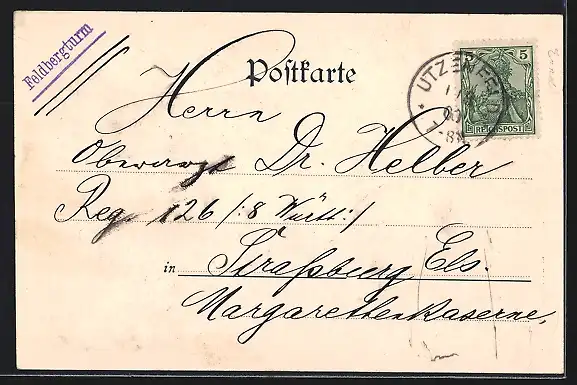 Feldbergturm
Postkarte
5
REICHSPOST
UTZENFELD
7-8N
Herrn
Oberarzt Dr. Helber
Reg 126 /:8 Württ:/
in Straßburg Els.
Margarethenkaserne,